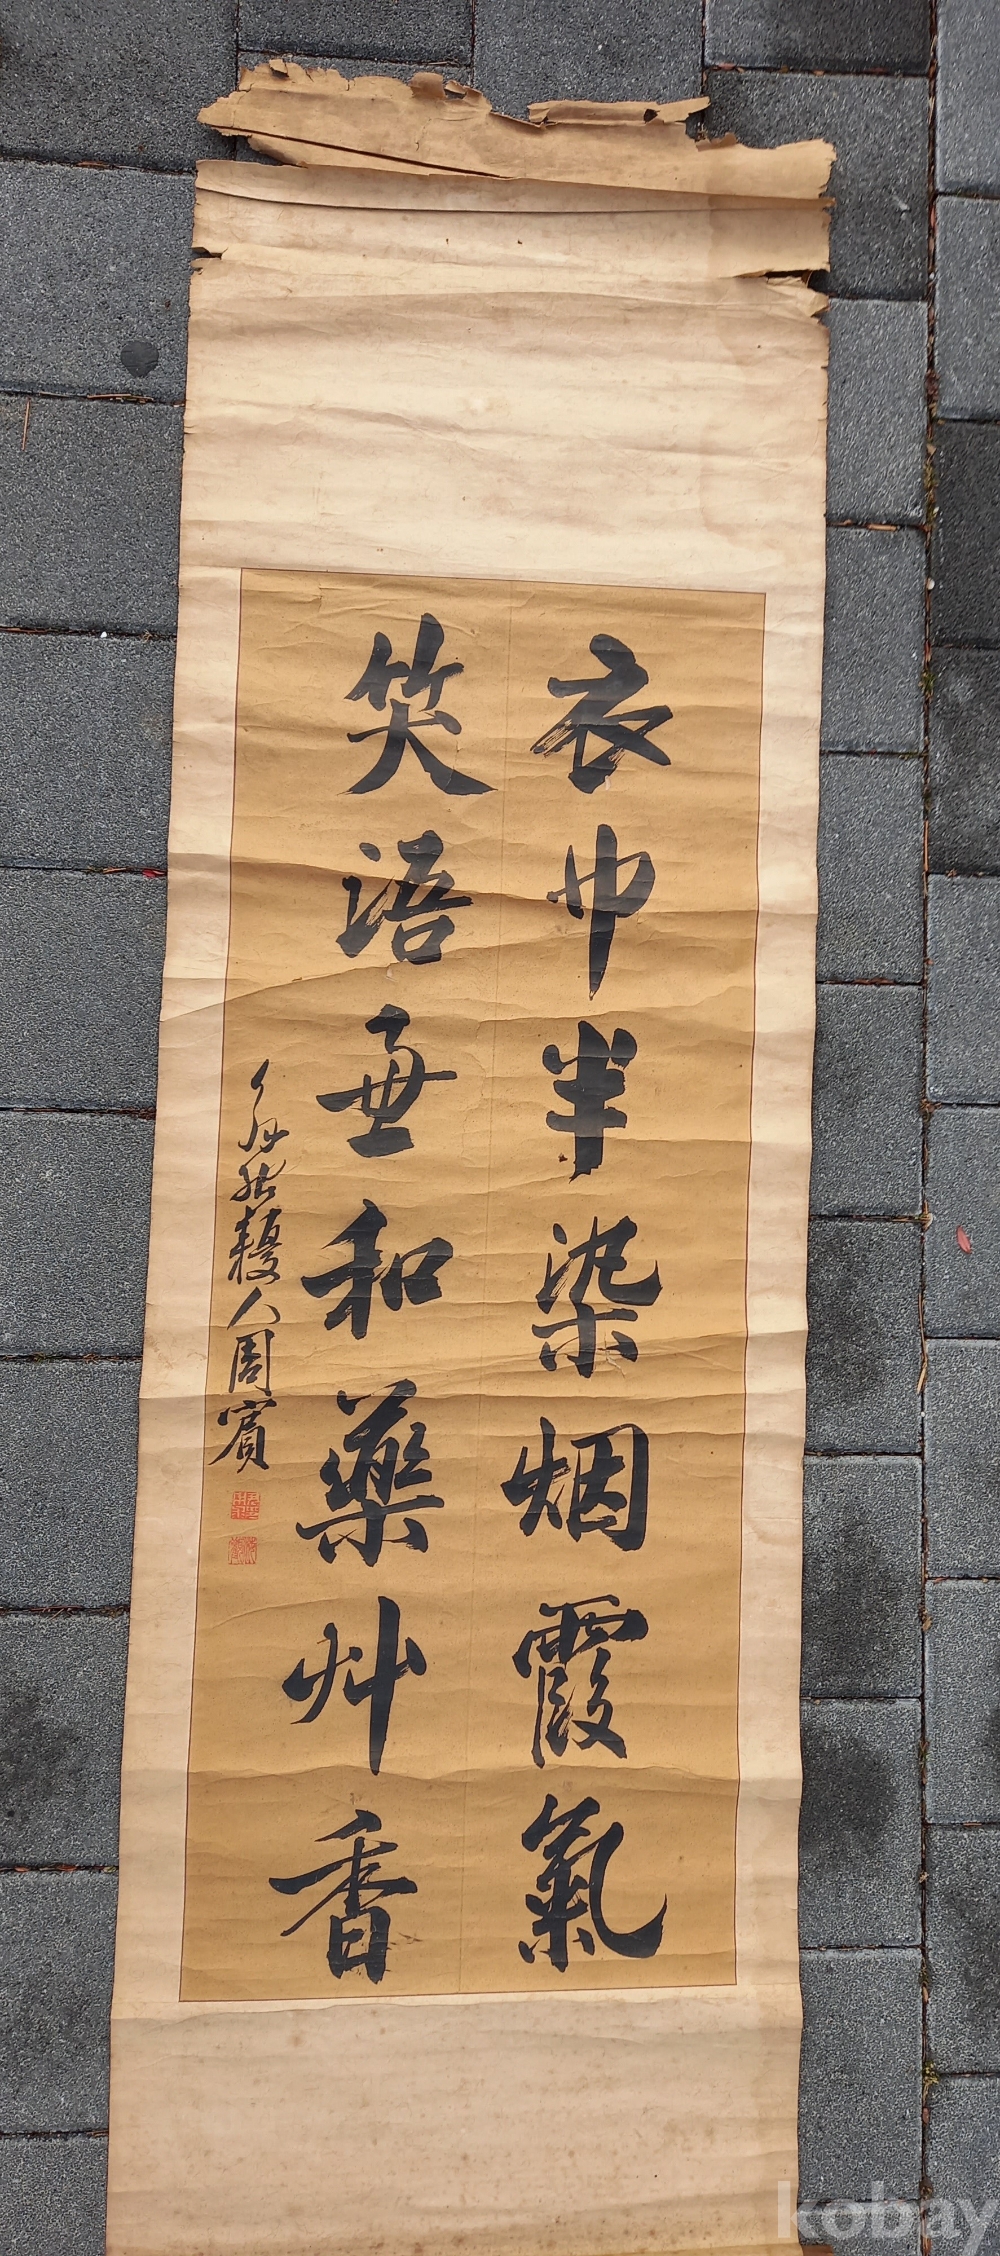 衣巾半染烟霞氣
笑語兼和藥艸香
耰人周賓
kobay